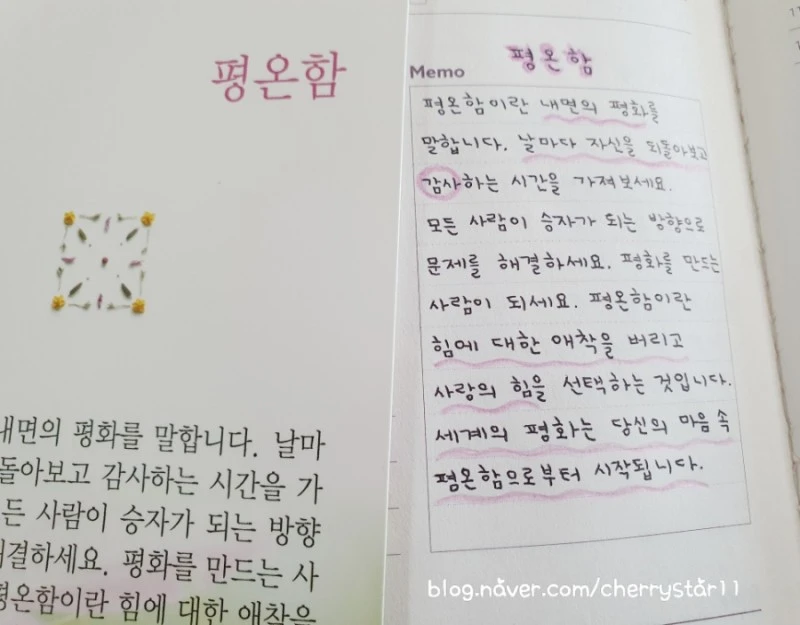 평온함
내면의 평화를 말합니다. 날마
돌아보고 감사하는 시간을 가
든 사람이 승자가 되는 방향
결하세요. 평화를 만드는 사
평온함이란 힘에 대한 애착을
Memo
평온함
평온함이란 내면의 평화를
말합니다. 날마다 자신을 되돌아보고
감사하는 시간을 가져보세요.
모든 사람이 승자가 되는 방향으로
문제를 해결하세요. 평화를 만드는
사람이 되세요. 평온함이란
힘에 대한 애착을 버리고
사랑의 힘을 선택하는 것입니다.
세계의 평화는 당신의 마음 속
평온함으로부터 시작됩니다.
blog.naver.com/cherrystar11